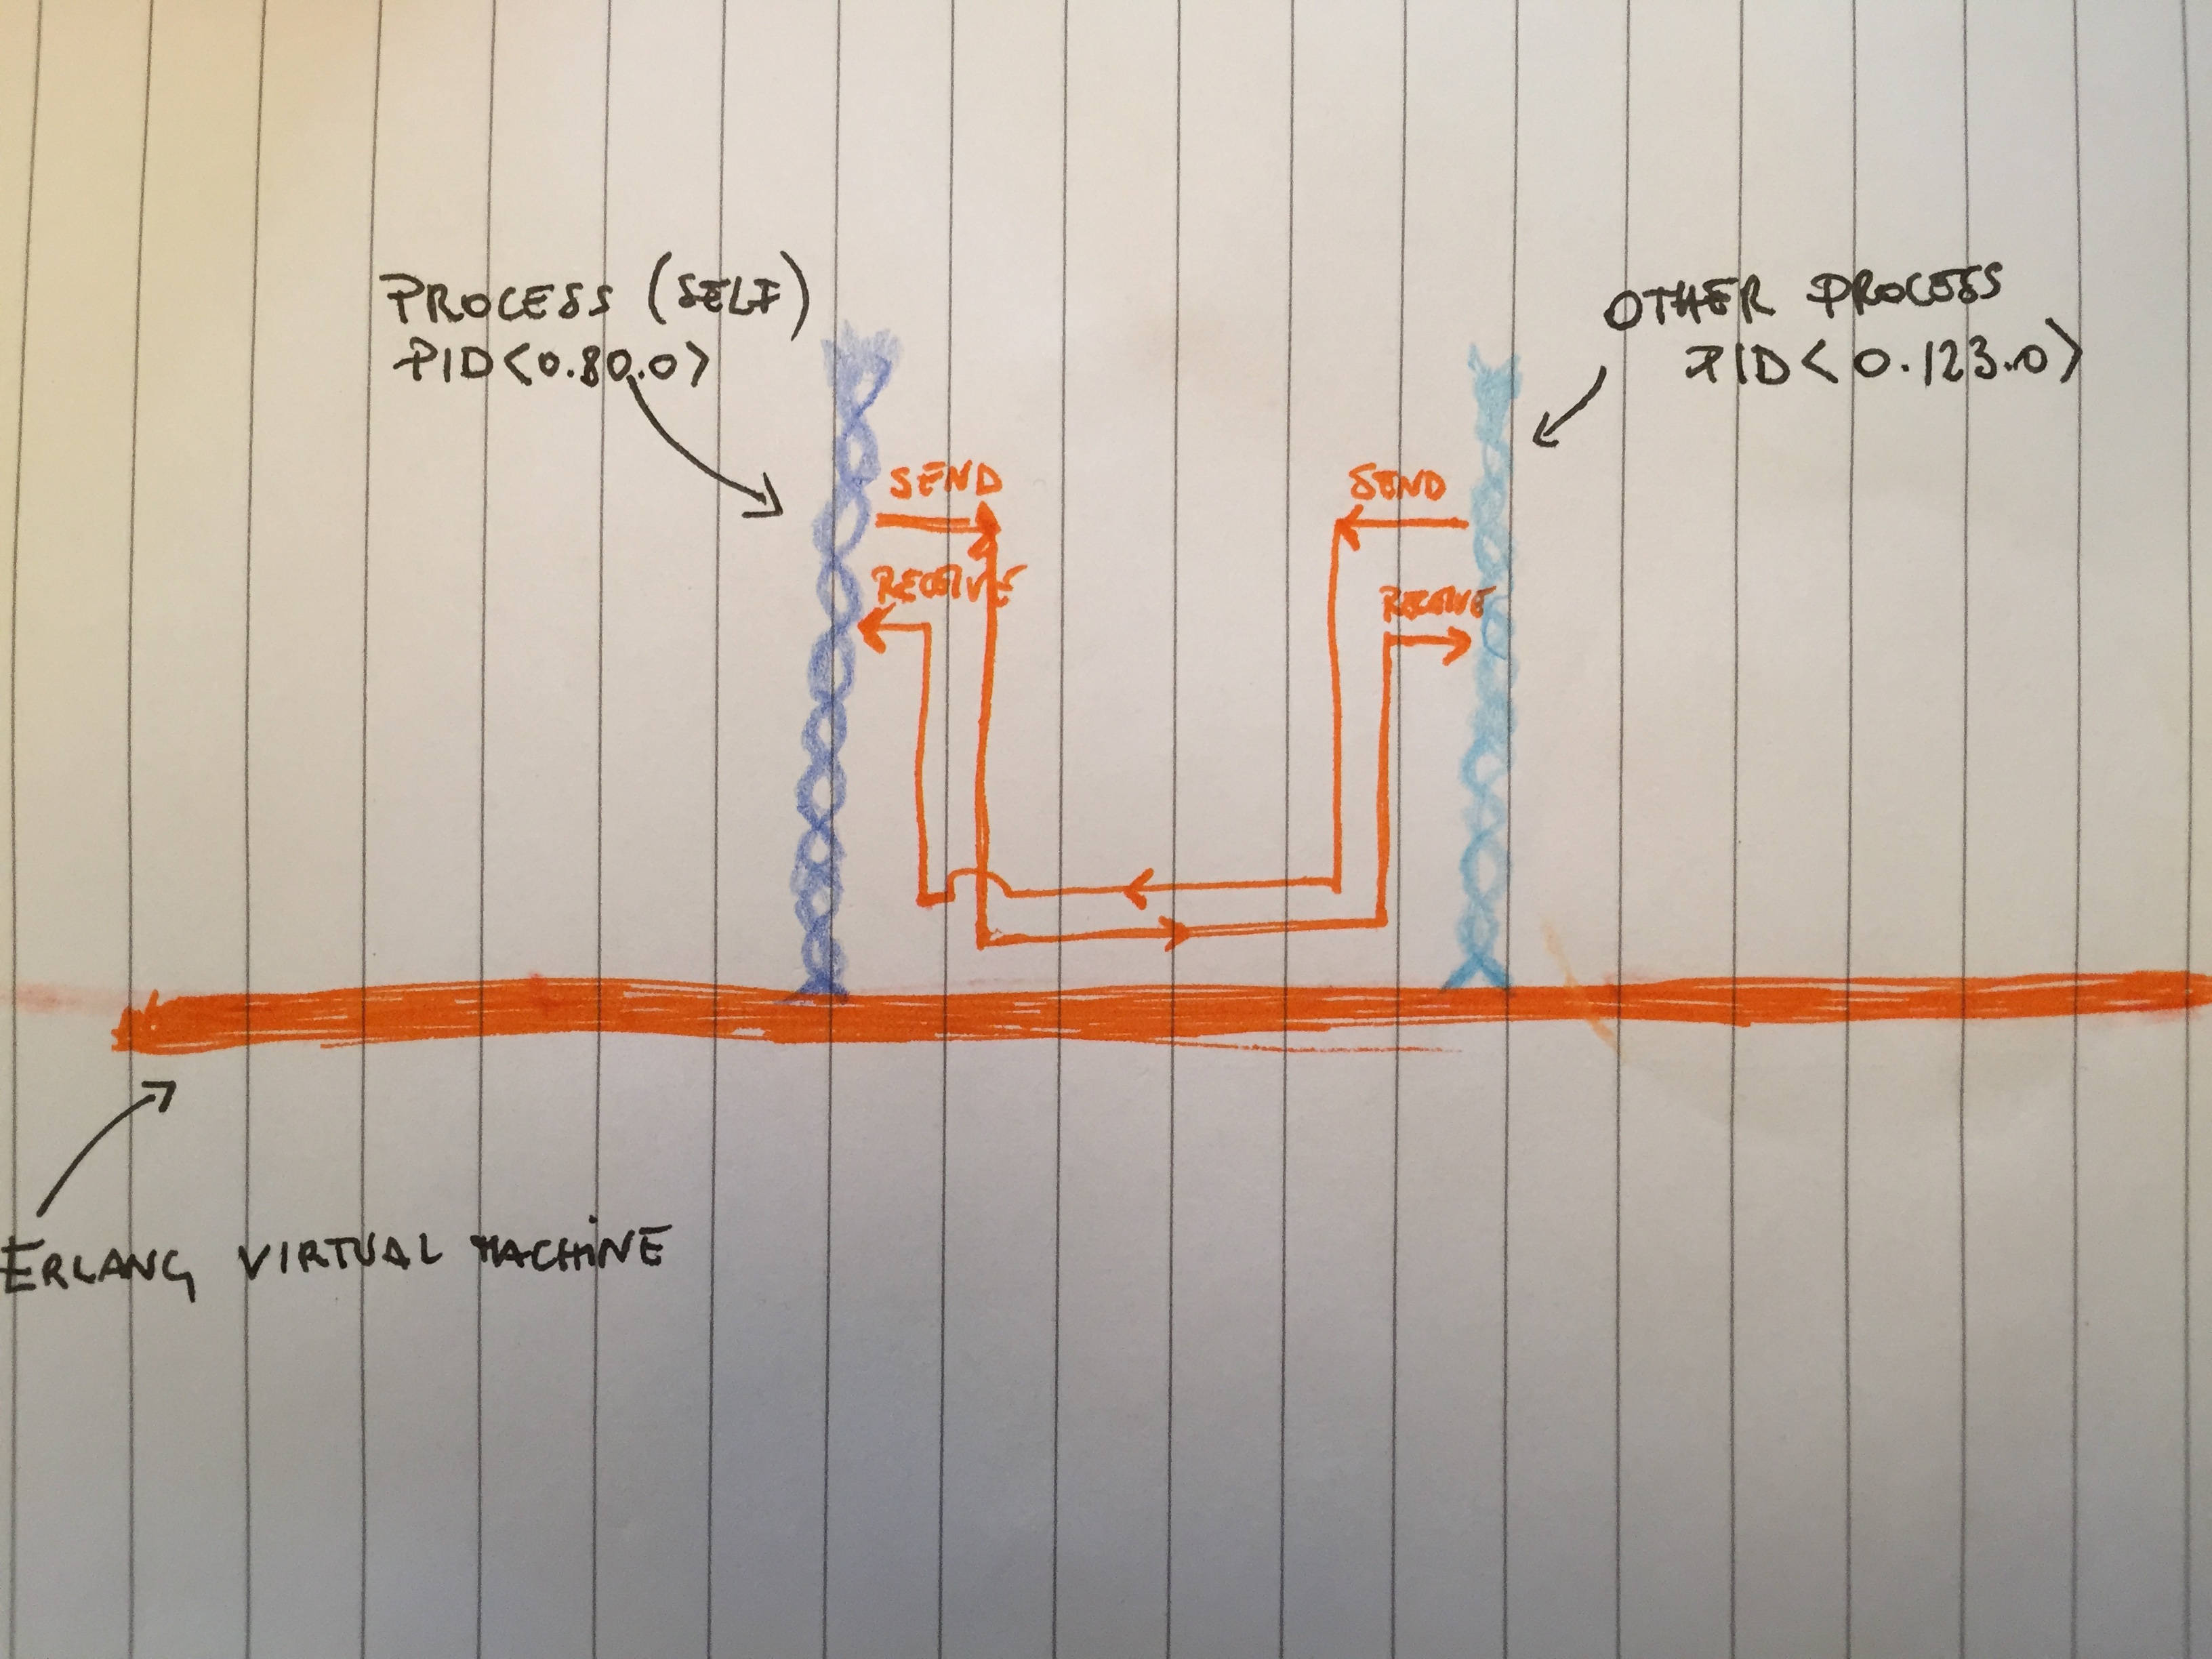 PROCESS (SELF)
PID<0.80.0>
OTHER PROCESS
PID<0.123.0>
SEND
RECEIVE
SEND
RECEIVE
ERLANG VIRTUAL MACHINE